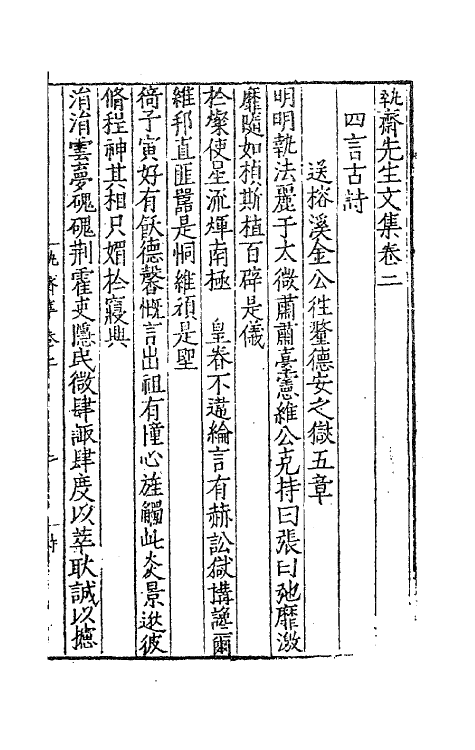 執齋先生文集卷二
四言古詩
送榕溪金公徃鳌德安之獄五章
明明執法麗于太微肅肅臺憲維公克持曰張曰弛靡激
靡隨如楨斯植百辟是儀
於燦使星流煇南極 皇眷不遺綸言有赫訟獄搆讒爾
維邦直匪嚚是恫維頑是堲
徛子寅好有飫德馨慨言出祖有憧心旌觸此炎景逖彼
脩程神其相只媚於寢興
㳙㳙雲夢磈磈荆霍吏隱民微肆諏肆度以莘耿誠以摅